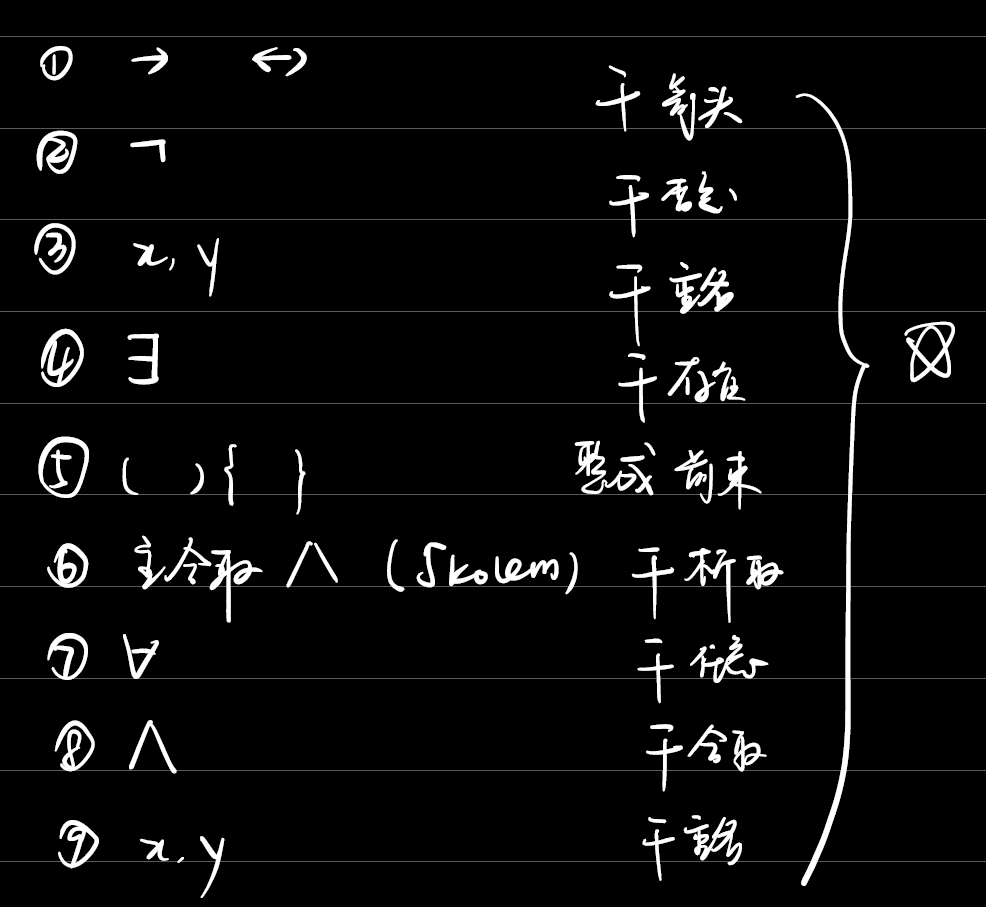 ① → ↔ 干箭头
② ¬ 干否定
③ x, y 干重名
④ ∃ 干存在
⑤ ( ) { } 整成前束
⑥ 主合取 ∧ (Skolem) 干析取
⑦ ∀ 干任意
⑧ ∧ 干合取
⑨ x, y 干重名